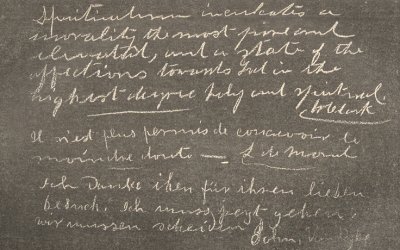 Spiritualism inculcates a
morality the most pure and
elevated, and a state of the
affections towards God in the
highest degree holy and spiritual.
Il n'est plus permis de concevoir le
moindre doute —
Ich danke ihen für ihren lieben
besuch. Ich muss jezt gehen.
wir mussen scheiden